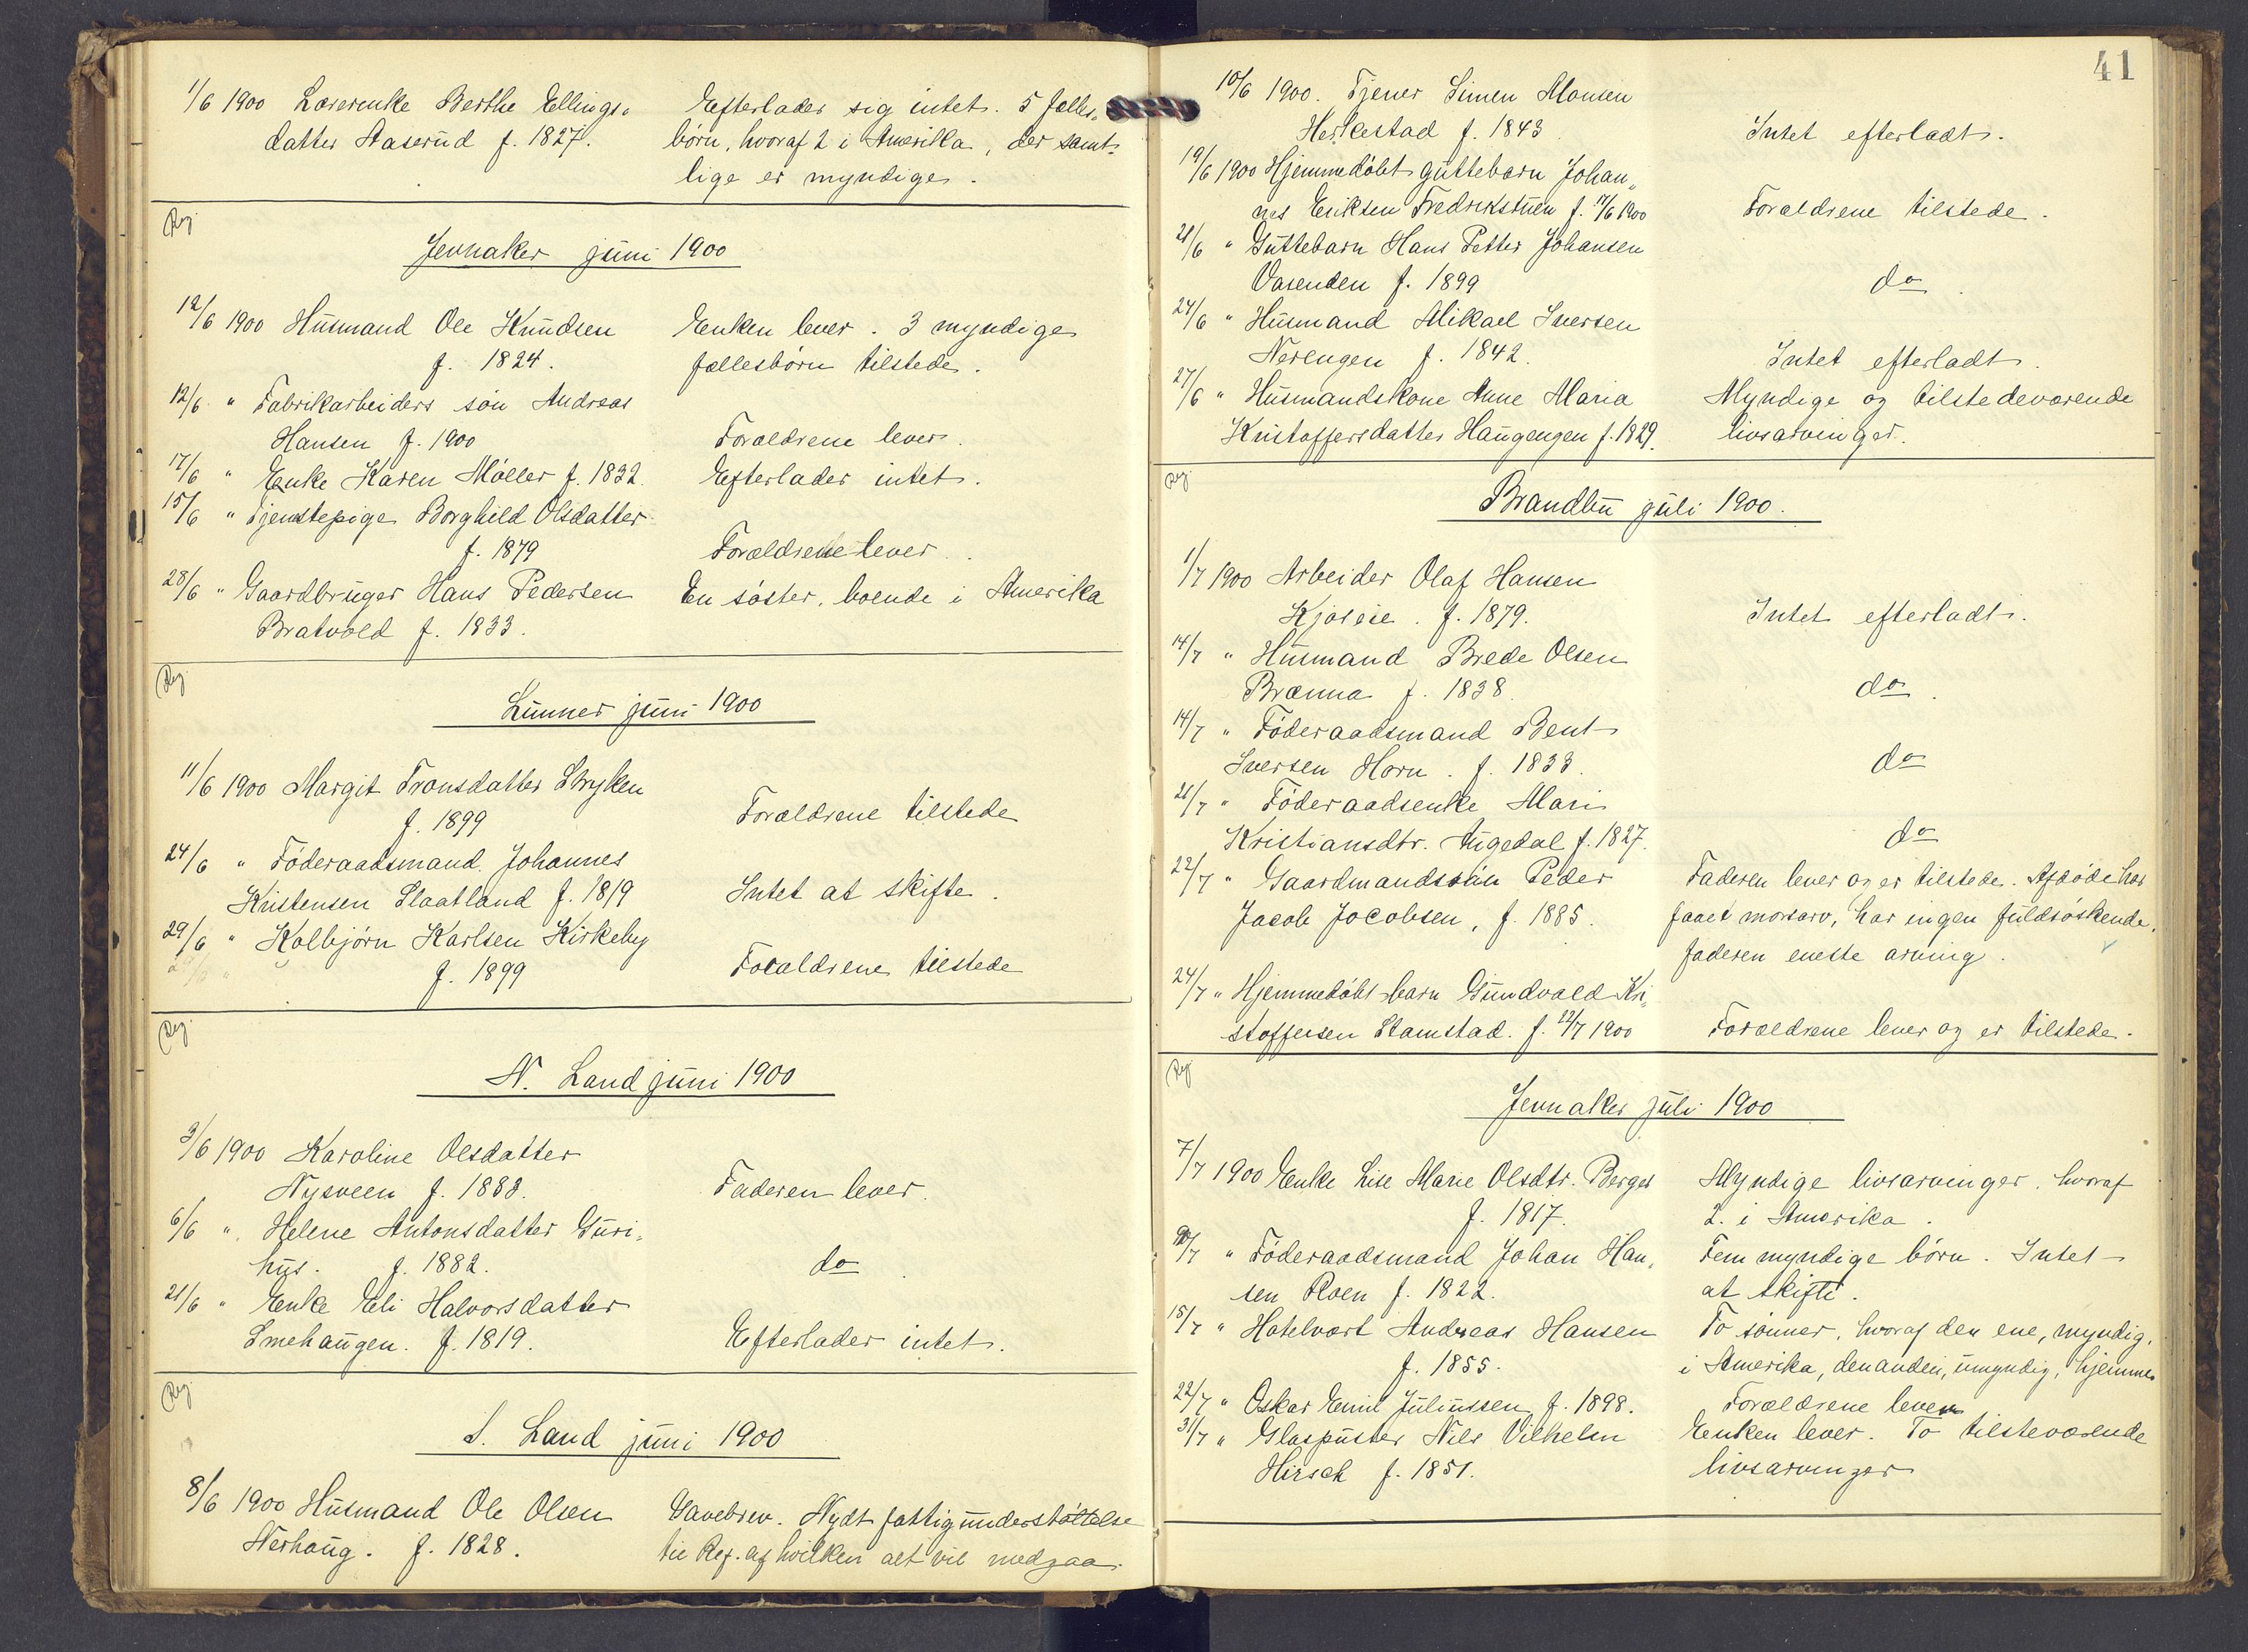 1/6 1900 Lærerenke Berthe Ellings-
datter Aaserud f. 1827.
Efterlader sig intet. 5 fælles-
børn, hvoraf 2 i Amerika, der samt-
lige er myndige.
Reg.
Jevnaker juni 1900
12/6 1900 Husmand Ole Knudsen
f. 1824.
Enken lever. 3 myndige
fællesbørn tilstede.
12/6 " Fabrikarbeiders søn Andreas
Hansen f. 1900
Forældrene lever.
17/6 " Enke Karen Møller f. 1832.
Efterlader intet.
15/6 " Tjenstepige Borghild Olsdatter
f. 1879
Forældrene lever.
28/6 " Gaardbruger Hans Pedersen
Bratvold f. 1833.
En søster, boende i Amerika
Reg.
Lunner juni 1900
11/6 1900 Margit Tronsdatter Stryken
f. 1899
Forældrene tilstede
24/6 " Føderaadsmand Johannes
Kristensen Slaatland f. 1819
Intet at skifte.
29/6 " Kolbjørn Karlsen Kirkeby
f. 1899
Forældrene tilstede
Reg.
N. Land juni 1900
3/6 1900 Karoline Olsdatter
Nysveen f. 1883.
Faderen lever.
6/6 " Helene Antonsdatter Guri-
hus. f. 1882.
do
21/6 " Enke Eli Halvorsdatter
Smehaugen. f. 1819.
Efterlader intet.
Reg.
S. Land juni 1900
8/6 1900 Husmand Ole Olsen
Nerhaug. f. 1828.
Gavebrev. Nydt fattigunderstøttelse
til Rej. af hvilken alt vil medgaa.
41
10/6 1900. Tjener Simen Monsen
Herkestad f. 1843
Intet efterladt.
19/6 1900 Hjemmedøbt guttebarn Johan-
nes Eriksen Fredrikstuen f. 17/6 1900
Forældrene tilstede.
21/6 " Guttebarn Hans Petter Johansen
Vasenden f. 1899
do.
24/6 " Husmand Mikael Iversen
Nerengen f. 1842.
Intet efterladt.
27/6 " Husmandskone Anne Maria
Kristoffersdatter Haugengen f. 1829.
Myndige og tilstedeværende
livsarvinger.
Reg.
Brandbu juli 1900.
1/7 1900 Arbeider Olaf Hansen
Kjoseie. f. 1879.
Intet efterladt.
14/7 " Husmand Brede Olsen
Brænna f. 1838.
do.
14/7 " Føderaadsmand Bent
Iversen Horn. f. 1833.
do
21/7 " Føderaadsenke Mari
Kristiansdtr. Augedal f. 1827.
do
22/7 " Gaardmandssøn Peder
Jacob Jacobsen, f. 1885.
Faderen lever og er tilstede. Afdøde har
faaet morsarv, har ingen fuldsøskende,
faderen eneste arving.
24/7 " Hjemmedøbt barn Gundvald Kri-
stoffersen Stamstad. f. 22/7 1900
Forældrene lever og er tilstede.
Reg.
Jevnaker juli 1900
7/7 1900 Enke Lise Marie Olsdtr. Berger
f. 1817.
Myndige livsarvinger, hvoraf
2. i Amerika.
10/7 " Føderaadsmand Johan Han-
sen Roen f. 1822.
Fem myndige børn. Intet
at skifte.
15/7 " Hotelvært Andreas Hansen
f. 1855.
To sønner, hvoraf den ene, myndig,
i Amerika, den anden, umyndig, hjemme
22/7 " Oskar Emil Juliussen f. 1898.
Forældrene lever
31/7 " Glaspuster Nils Vilhelm
Hirsch f. 1851.
Enken lever. To tilsteværende
livsarvinger